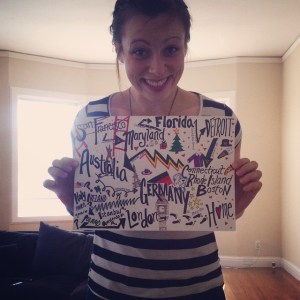 San Francisco
Florida
DETROIT
Maryland
Australia
Connecticut
Rhode Island
BOSTON
GERMANY
London
Home